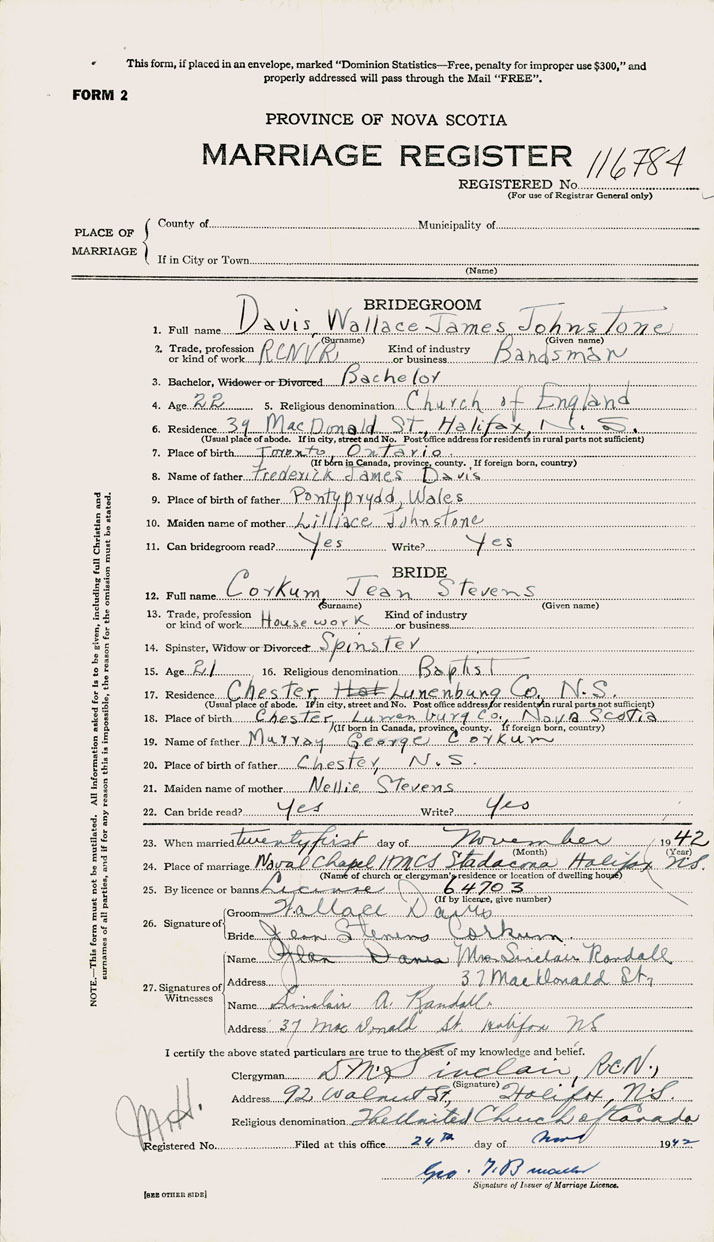 This form, if placed in an envelope, marked "Dominion Statistics—Free, penalty for improper use $300," and
properly addressed will pass through the Mail "FREE".
FORM 2
PROVINCE OF NOVA SCOTIA
MARRIAGE REGISTER
116784
REGISTERED No.
(For use of Registrar General only)
PLACE OF MARRIAGE
County of Municipality of
If in City or Town
(Name)
BRIDEGROOM
1. Full name Davis, Wallace James Johnstone
(Surname) (Given name)
2. Trade, profession or kind of work RCNVR Kind of industry or business Bandsman
3. Bachelor, Widower or Divorced Bachelor
4. Age 22 5. Religious denomination Church of England
6. Residence 39 MacDonald St., Halifax, N. S.
(Usual place of abode. If in city, street and No. Post office address for residents in rural parts not sufficient)
7. Place of birth Toronto, Ontario
(If born in Canada, province, county. If foreign born, country)
8. Name of father Frederick James Davis
9. Place of birth of father Pontyprydd, Wales
10. Maiden name of mother Lilliace Johnstone
11. Can bridegroom read? Yes Write? Yes
BRIDE
12. Full name Corkum, Jean Stevens
(Surname) (Given name)
13. Trade, profession or kind of work Housework Kind of industry or business
14. Spinster, Widow or Divorced Spinster
15. Age 21 16. Religious denomination Baptist
17. Residence Chester, Hal Lunenburg Co., N.S.
(Usual place of abode. If in city, street and No. Post office address for residents in rural parts not sufficient)
18. Place of birth Chester, Lunenburg Co., Nova Scotia
(If born in Canada, province, county. If foreign born, country)
19. Name of father Murray George Corkum
20. Place of birth of father Chester, N. S.
21. Maiden name of mother Nellie Stevens
22. Can bride read? Yes Write? Yes
23. When married twenty first day of November 1942
(Month) (Year)
24. Place of marriage Naval Chapel HMCS Stadacona Halifax N.S.
(Name of church or clergyman's residence or location of dwelling house)
25. By licence or banns License 64703
(If by licence, give number)
26. Signature of
Groom Wallace Davis
Bride Jean Stevens Corkum
27. Signatures of Witnesses
Name Davis Mrs. Sinclair Randall
Address 37 MacDonald St.,
Name Sinclair A. Randall.
Address 37 MacDonald St Halifax NS
I certify the above stated particulars are true to the best of my knowledge and belief.
Clergyman Sinclair, RCN.,
(Signature)
Address 92 Walnut St., Halifax, N.S.
Religious denomination The United Church of Canada
M.H.
Registered No. Filed at this office 24th day of Nov 1942
Geo.
Signature of Issuer of Marriage Licence.
[SEE OTHER SIDE]
NOTE.—This form must not be mutilated. All information asked for is to be given, including full Christian and
surnames of all parties, and if for any reason this is impossible, the reason for the omission must be stated.